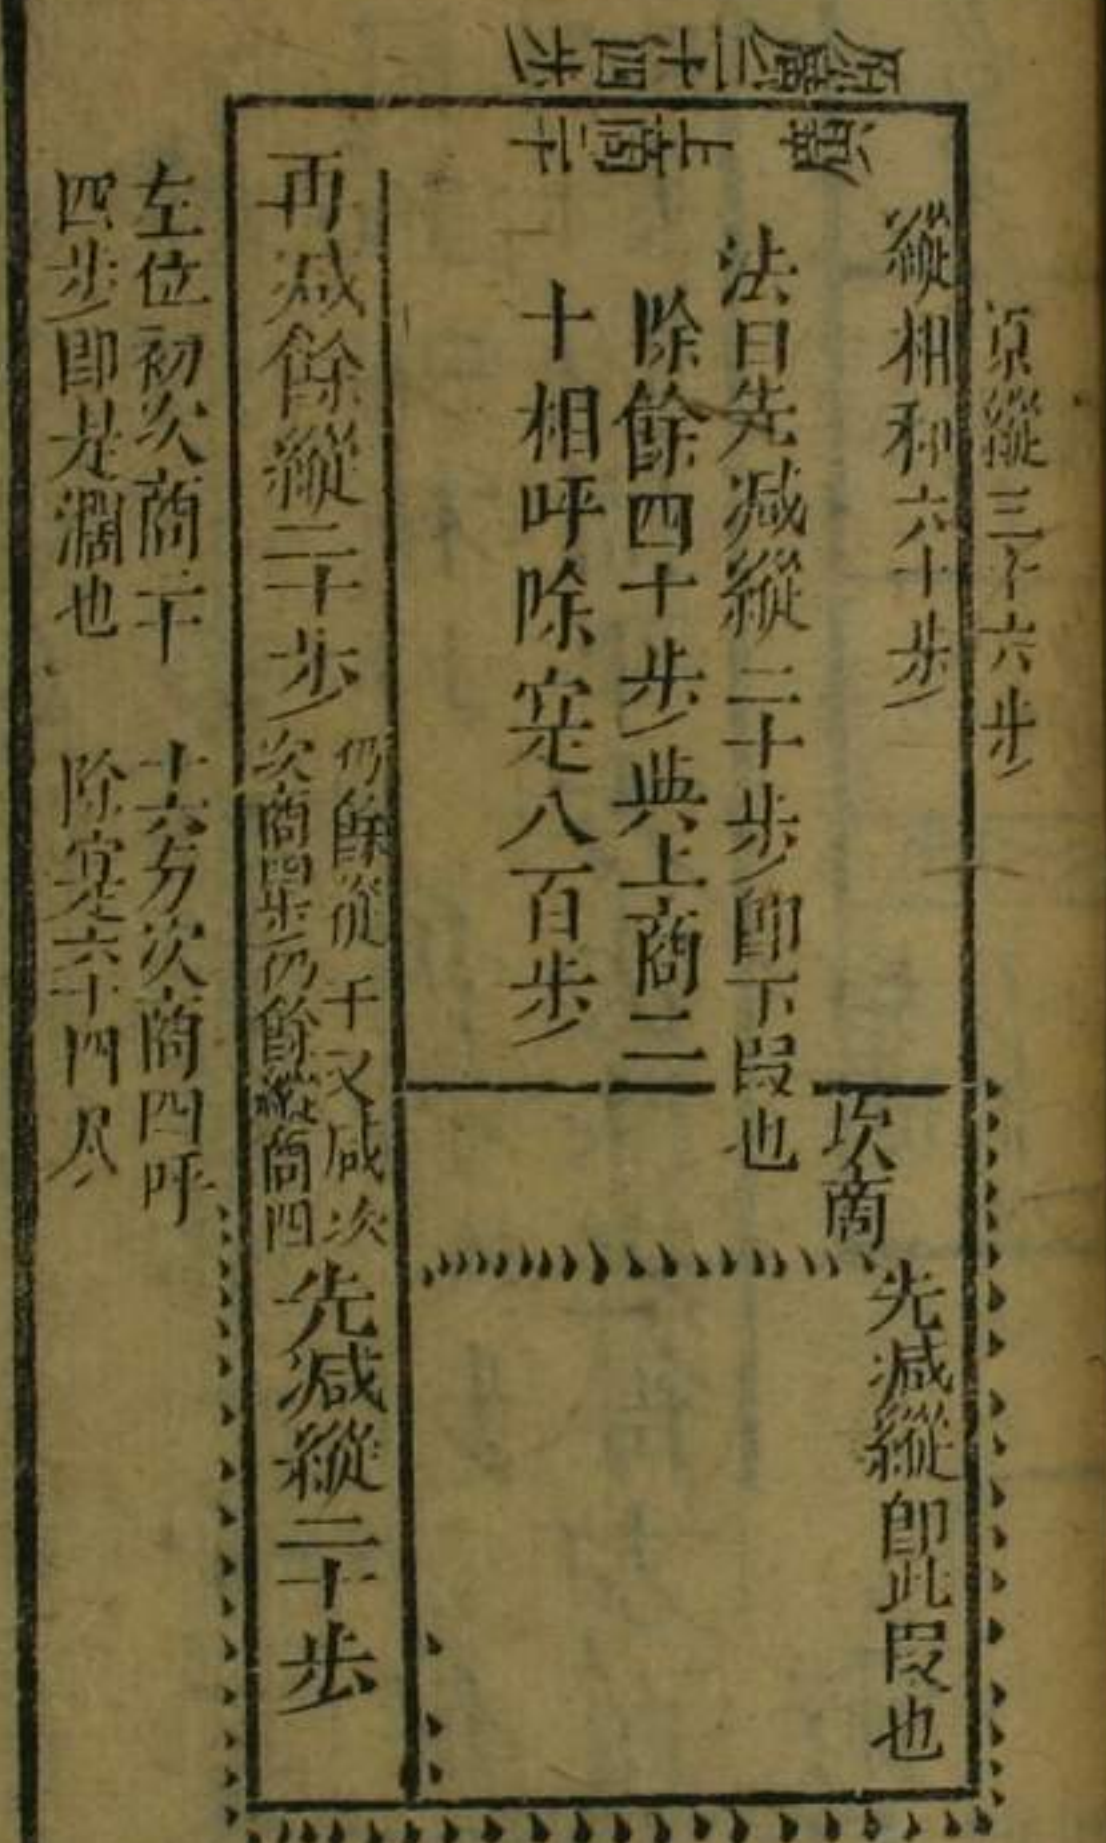 原廣二十四步
初上商二十
原縱三十六步
縱相和六十步
法曰先減縱二十步卽下段也
除餘四十步與上商二
十相呼除寔八百步
次商
先減縱卽此段也
再減餘縱二十步
仍餘縱 千又減次
次商四步仍餘縱商四
先減縱二十步
左位初次商二十
四步卽是濶也
十六方次商四呼
除寔六十四尽